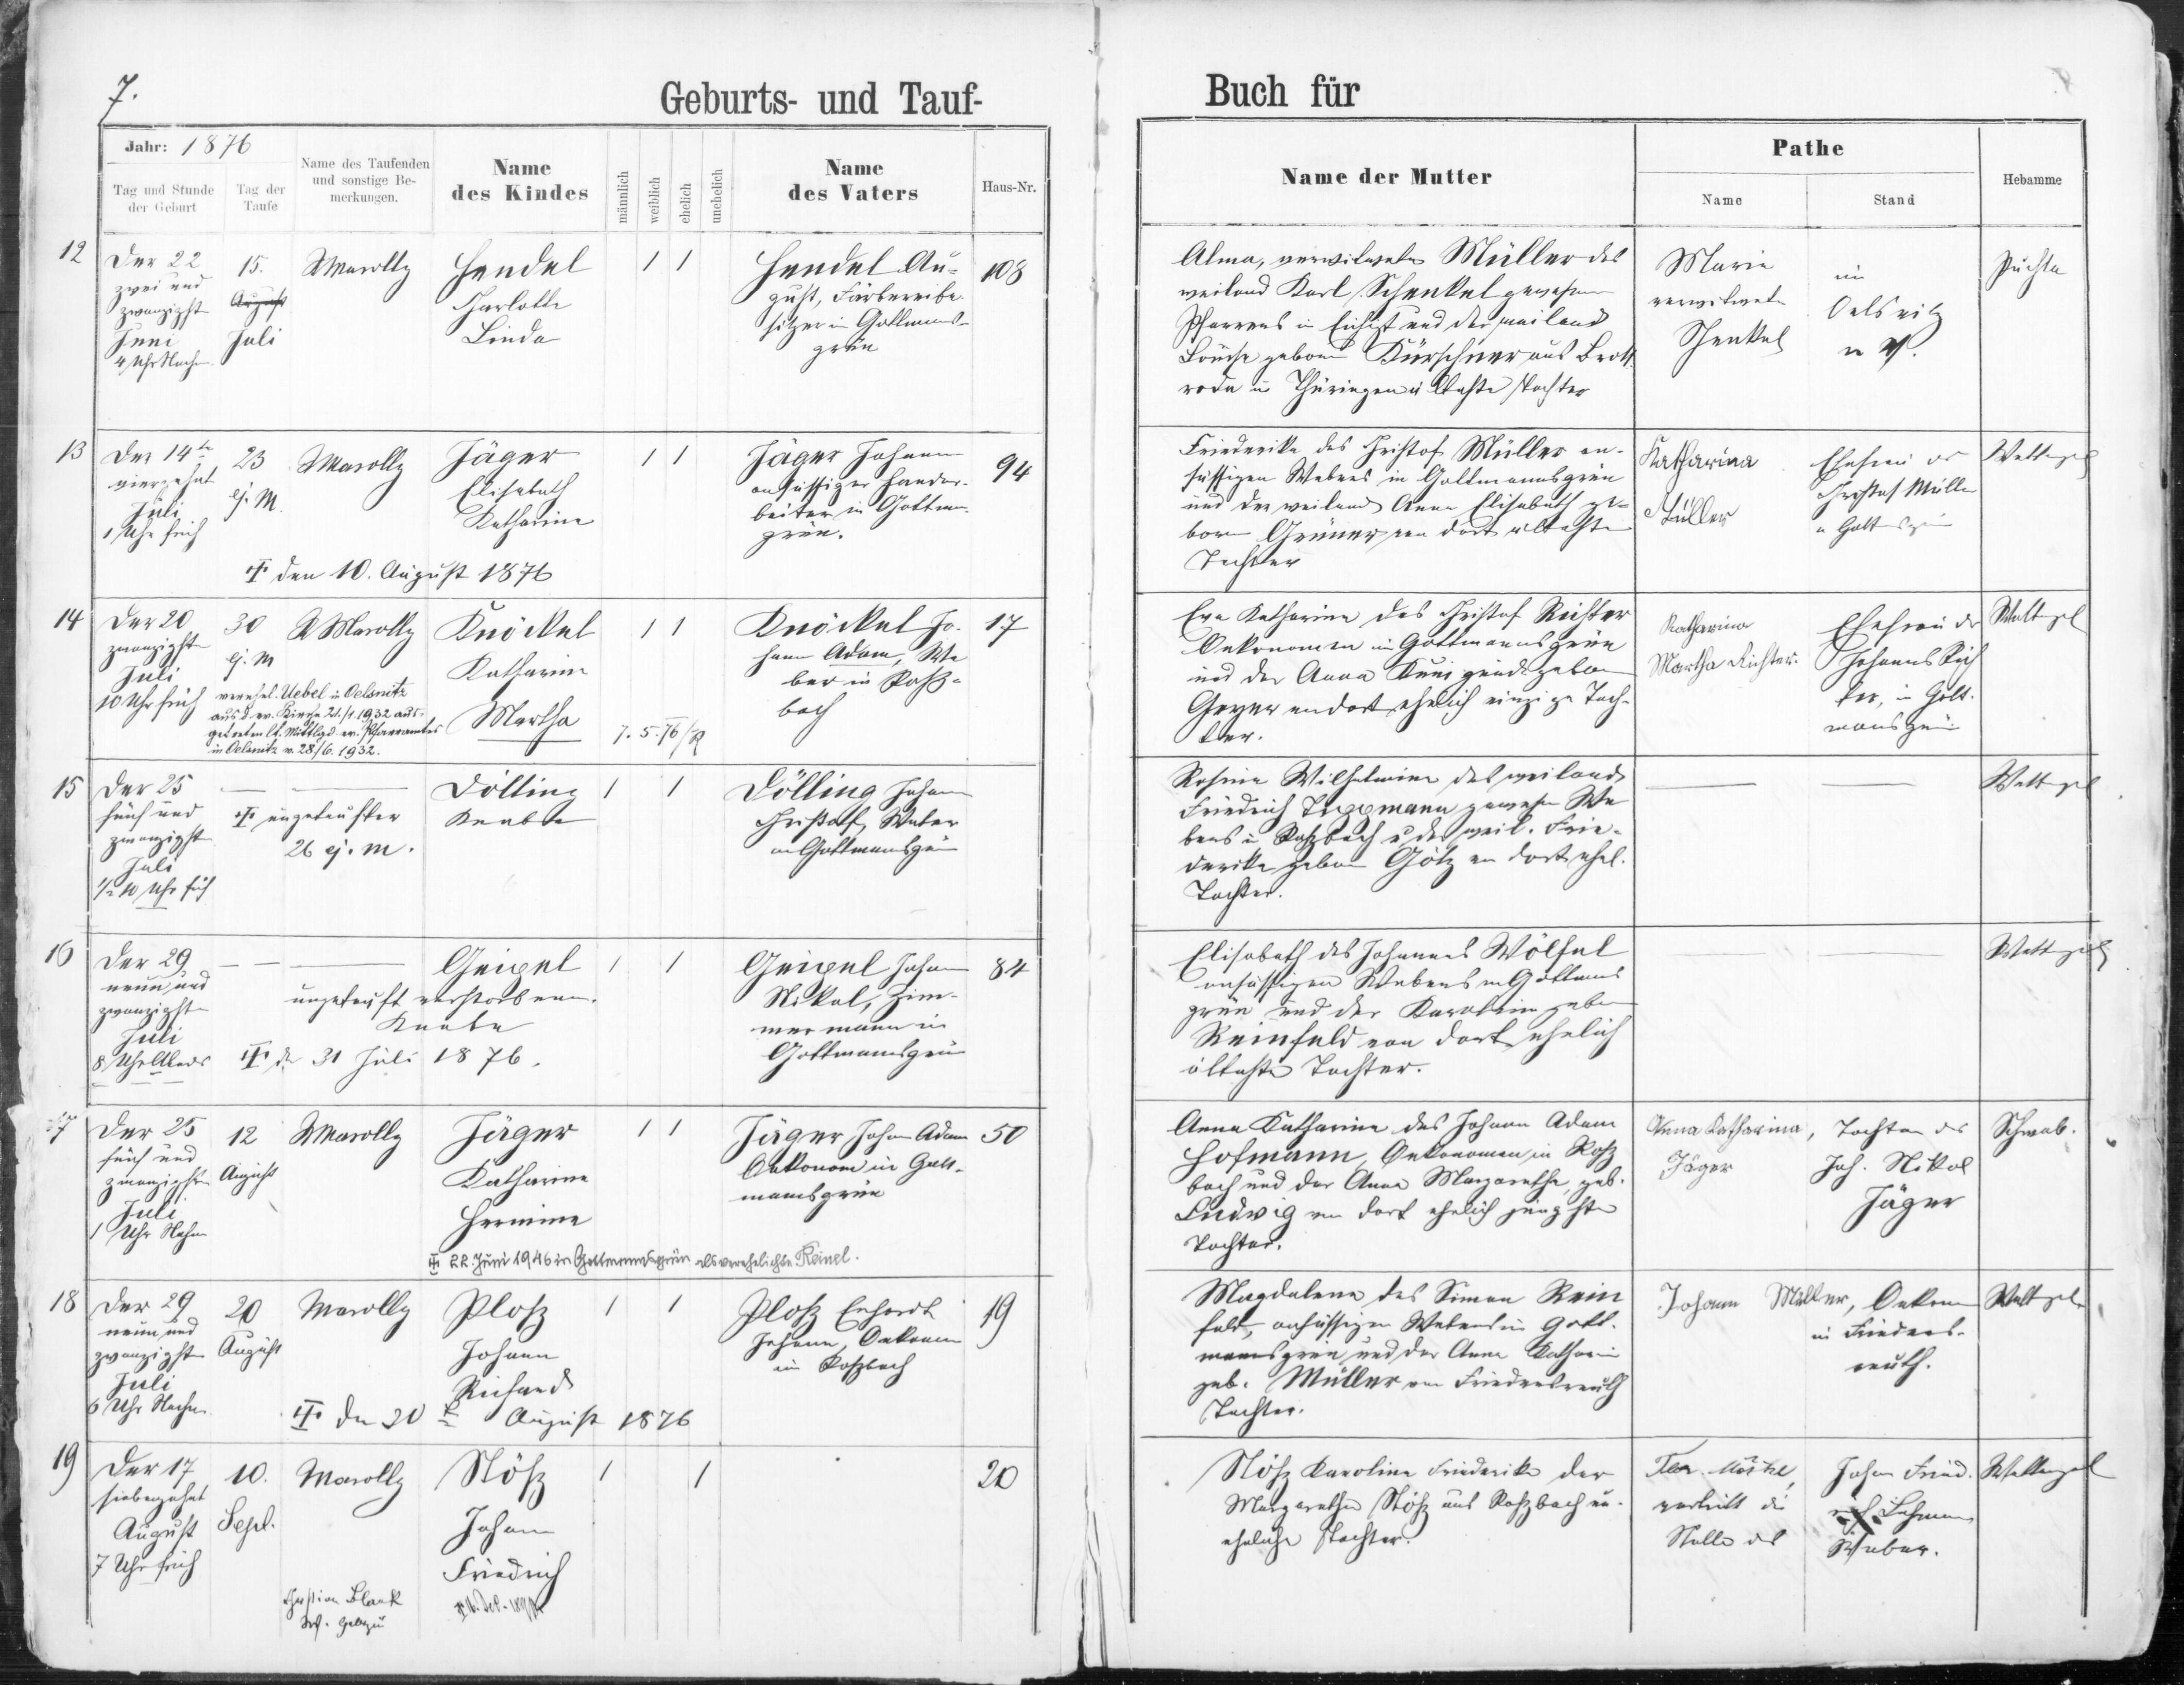 7.
Geburts- und Tauf-
Buch für
Jahr: 1876
Tag und Stunde
der Geburt
Tag der
Taufe
Name des Taufenden
und sonstige Be-
merkungen.
Name
des Kindes
männlich
weiblich
ehelich
unehelich
Name
des Vaters
Haus-Nr.
Name der Mutter
Pathe
Name
Stand
Hebamme
12
Der 22
zwei und
zwanzigste
Juni
4 Uhr Nachm.
15.
August
Juli
Marolly
Hendel
Charlotte
Linda
1 1
Hendel Au-
gust, Färbereibe-
sitzer in Gottmanns-
grün
108
Alma, verwitwete Müller des
weiland Karl Schenkel gewesenen
Pfarrers in Eichigt und der weiland
Louise geborne Kürschner aus Brott
rode in Thüringen älteste Tochter
Marie
verwitwete
Schenkel
in
Oelsnitz
i. V.
Puchta
13
Der 14te
vierzehnt
Juli
1 Uhr früh
23
ej. M.
Marolly
Jäger
Elisabeth
Katharine
1 1
Jäger Johann
ansässiger Handar-
beiter in Gottmans-
grün.
94
den 10. August 1876
Friederike des Christof Müller an-
sässigen Webers in Gottmannsgrün
und der weiland Anna Elisabeth ge-
borne Grüner von dort älteste
Tochter
Katharina
Müller
Ehefrau des
Christof Müller
in Gottmansgrün
Wettengel
14
Der 20
zwanzigste
Juli
10 Uhr früh
30
ej. M
Marolly
Knöckel
Katharine
Martha
1 1
Knöckel Jo-
hann Adam, We
ber in Roß-
bach
17
verehel. Uebel in Oelsnitz
aus d. ev. Kirche 21./4.1932 aus-
getreten lt. Mittlgd. ev. Pfarramtes
in Oelsnitz v. 28/6. 1932.
Eva Katharine des Christof Richter
Oekonomen in Gottmannsgrün
und der Anna Kunigunde geborne
Geyer von dort ehelich einzige Toch-
ter.
Katharina
Martha Richter.
Ehefrau des
Johann Rich
ter, in Gott-
mansgrün
Wettengel
15
Der 25
fünf und
zwanzigste
Juli
1/2 10 Uhr früh
ungetaufter
26 ej. M.
Dölling
Knabe
1 1
Dölling Johann
Christoff, Weber
in Gottmannsgrün
Rosine Wilhelmine des weiland
Friedrich gewesen We
bers in Roßbach u. der weil. Frie-
derike geborne Götz von dort ehel.
Tochter.
Wettengel
16
Der 29
neun und
zwanzigste
Juli
8 Uhr Abends
ungetauft verstorbener
Knabe
den 31 Juli 1876.
Geipel
1 1
Geipel Johann
Nikol, Zim-
mermann in
Gottmannsgrün
84
Elisabeth des Johannes Wölfel
ansässigen Webers in Gottmans
grün und der Karoline geborne
Reinfeld von dort ehelich
älteste Tochter.
Wettengel
17
Der 25
fünf und
zwanzigste
Juli
1 Uhr Nachm
12
August
Marolly
Jäger
Katharine
Hermine
1 1
Jäger Johann Adam
Oekonom in Gott-
mannsgrün
50
22. Juni 1946 in Gottmannsgrün als verehelichte Reinel.
Anna Katharine des Johann Adam
Hofmann, Oekonomen in Roß
bach und der Anna Margarethe, geb.
Ludwig von dort ehelich jüngste
Tochter.
Anna Katharina,
Jäger
Tochter des
Joh. Nikol
Jäger
Schwab.
18
Der 29
neun und
zwanzigste
Juli
6 Uhr Nachm.
20
August
Marolly
Ploß
Johann
Richard
1 1
Ploß Erhardt
Johann, Oekonom
in Roßbach
19
August 1876
Magdalena des Simon Rein
feld, ansässigen Webers in Gott-
mannsgrün und der Anna Katharine
geb. Müller von Friedersreuth
Tochter.
Johann Müller, Oekonom
in Frieders-
reuth.
Wettengel
19
Der 17
siebenzehnt
August
7 Uhr früh
10.
Sept.
Marolly
Stöß
Johann
Friedrich
1 1
20
Stöß Karoline Friederike der
Margaretha Stöß aus Roßbach un-
eheliche Tochter.
vertritt die
Stelle des
Johann Fried-
rich Lehmann
Weber.
Wettengel